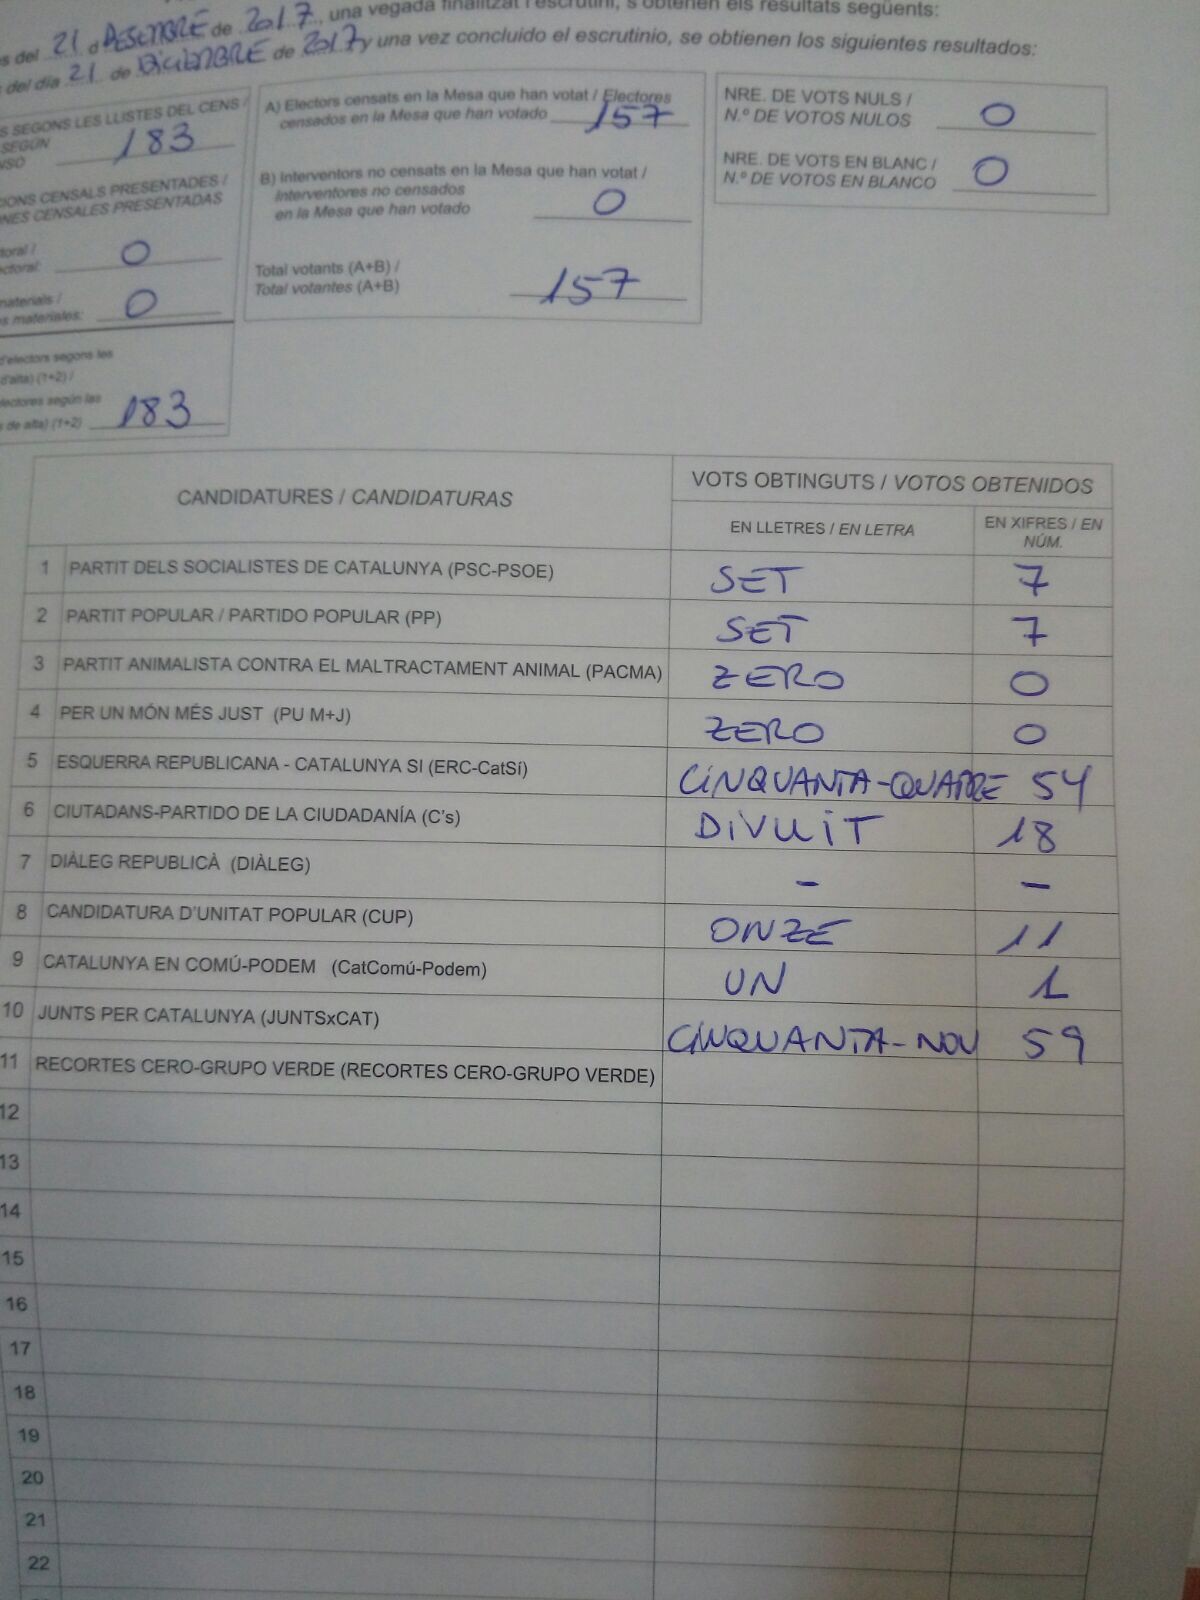 es del 21 d DESEMBRE de 2017, una vegada finalitzat l'escrutini, s'obtenen els resultats següents:
del día 21 de DiciEMBRE de 2017 y una vez concluido el escrutinio, se obtienen los siguientes resultados:
S SEGONS LES LLISTES DEL CENS /
SEGÚN
NSO 183
IONS CENSALS PRESENTADES /
NES CENSALES PRESENTADAS
toral /
ectoral: 0
materials /
s materiales: 0
d'electors segons les
d'alta) (1+2) /
lectores según las
s de alta) (1+2) 183
A) Electors censats en la Mesa que han votat / Electores
censados en la Mesa que han votado 157
B) Interventors no censats en la Mesa que han votat /
Interventores no censados
en la Mesa que han votado 0
Total votants (A+B) /
Total votantes (A+B) 157
NRE. DE VOTS NULS /
N.º DE VOTOS NULOS 0
NRE. DE VOTS EN BLANC /
N.º DE VOTOS EN BLANCO 0
CANDIDATURES / CANDIDATURAS
VOTS OBTINGUTS / VOTOS OBTENIDOS
EN LLETRES / EN LETRA
EN XIFRES / EN
NÚM.
1 PARTIT DELS SOCIALISTES DE CATALUNYA (PSC-PSOE) SET 7
2 PARTIT POPULAR / PARTIDO POPULAR (PP) SET 7
3 PARTIT ANIMALISTA CONTRA EL MALTRACTAMENT ANIMAL (PACMA) ZERO 0
4 PER UN MÓN MÉS JUST (PU M+J) ZERO 0
5 ESQUERRA REPUBLICANA - CATALUNYA SI (ERC-CatSí) CINQUANTA-QUATRE 54
6 CIUTADANS-PARTIDO DE LA CIUDADANÍA (C's) DIVUIT 18
7 DIÀLEG REPUBLICÀ (DIÀLEG) - -
8 CANDIDATURA D'UNITAT POPULAR (CUP) ONZE 11
9 CATALUNYA EN COMÚ-PODEM (CatComú-Podem) UN 1
10 JUNTS PER CATALUNYA (JUNTSxCAT) CINQUANTA-NOU 59
11 RECORTES CERO-GRUPO VERDE (RECORTES CERO-GRUPO VERDE)
12
13
14
15
16
17
18
19
20
21
22